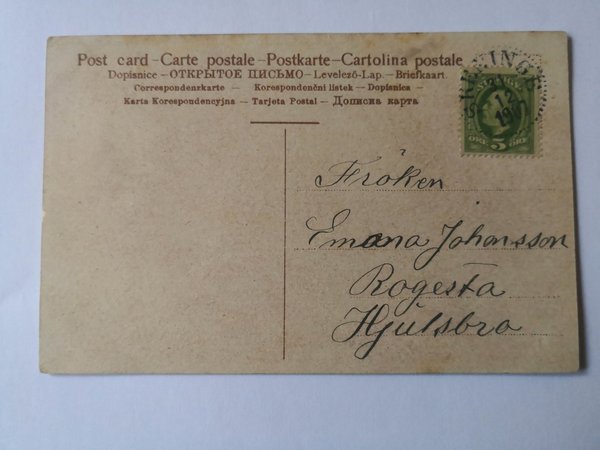 Post card – Carte postale – Postkarte – Cartolina postale
Dopisnice – ОТКРЫТОЕ ПИСЬМО – Levelező-Lap. – Briefkaart.
Correspondenzkarte – Korespondenční listek – Dopisnica –
Karta Korespondencyjna – Tarjeta Postal – Дописна карта
21
12
5
ÖRE
Fröken
Emma Johansson
Rogesta
Hjulsbro